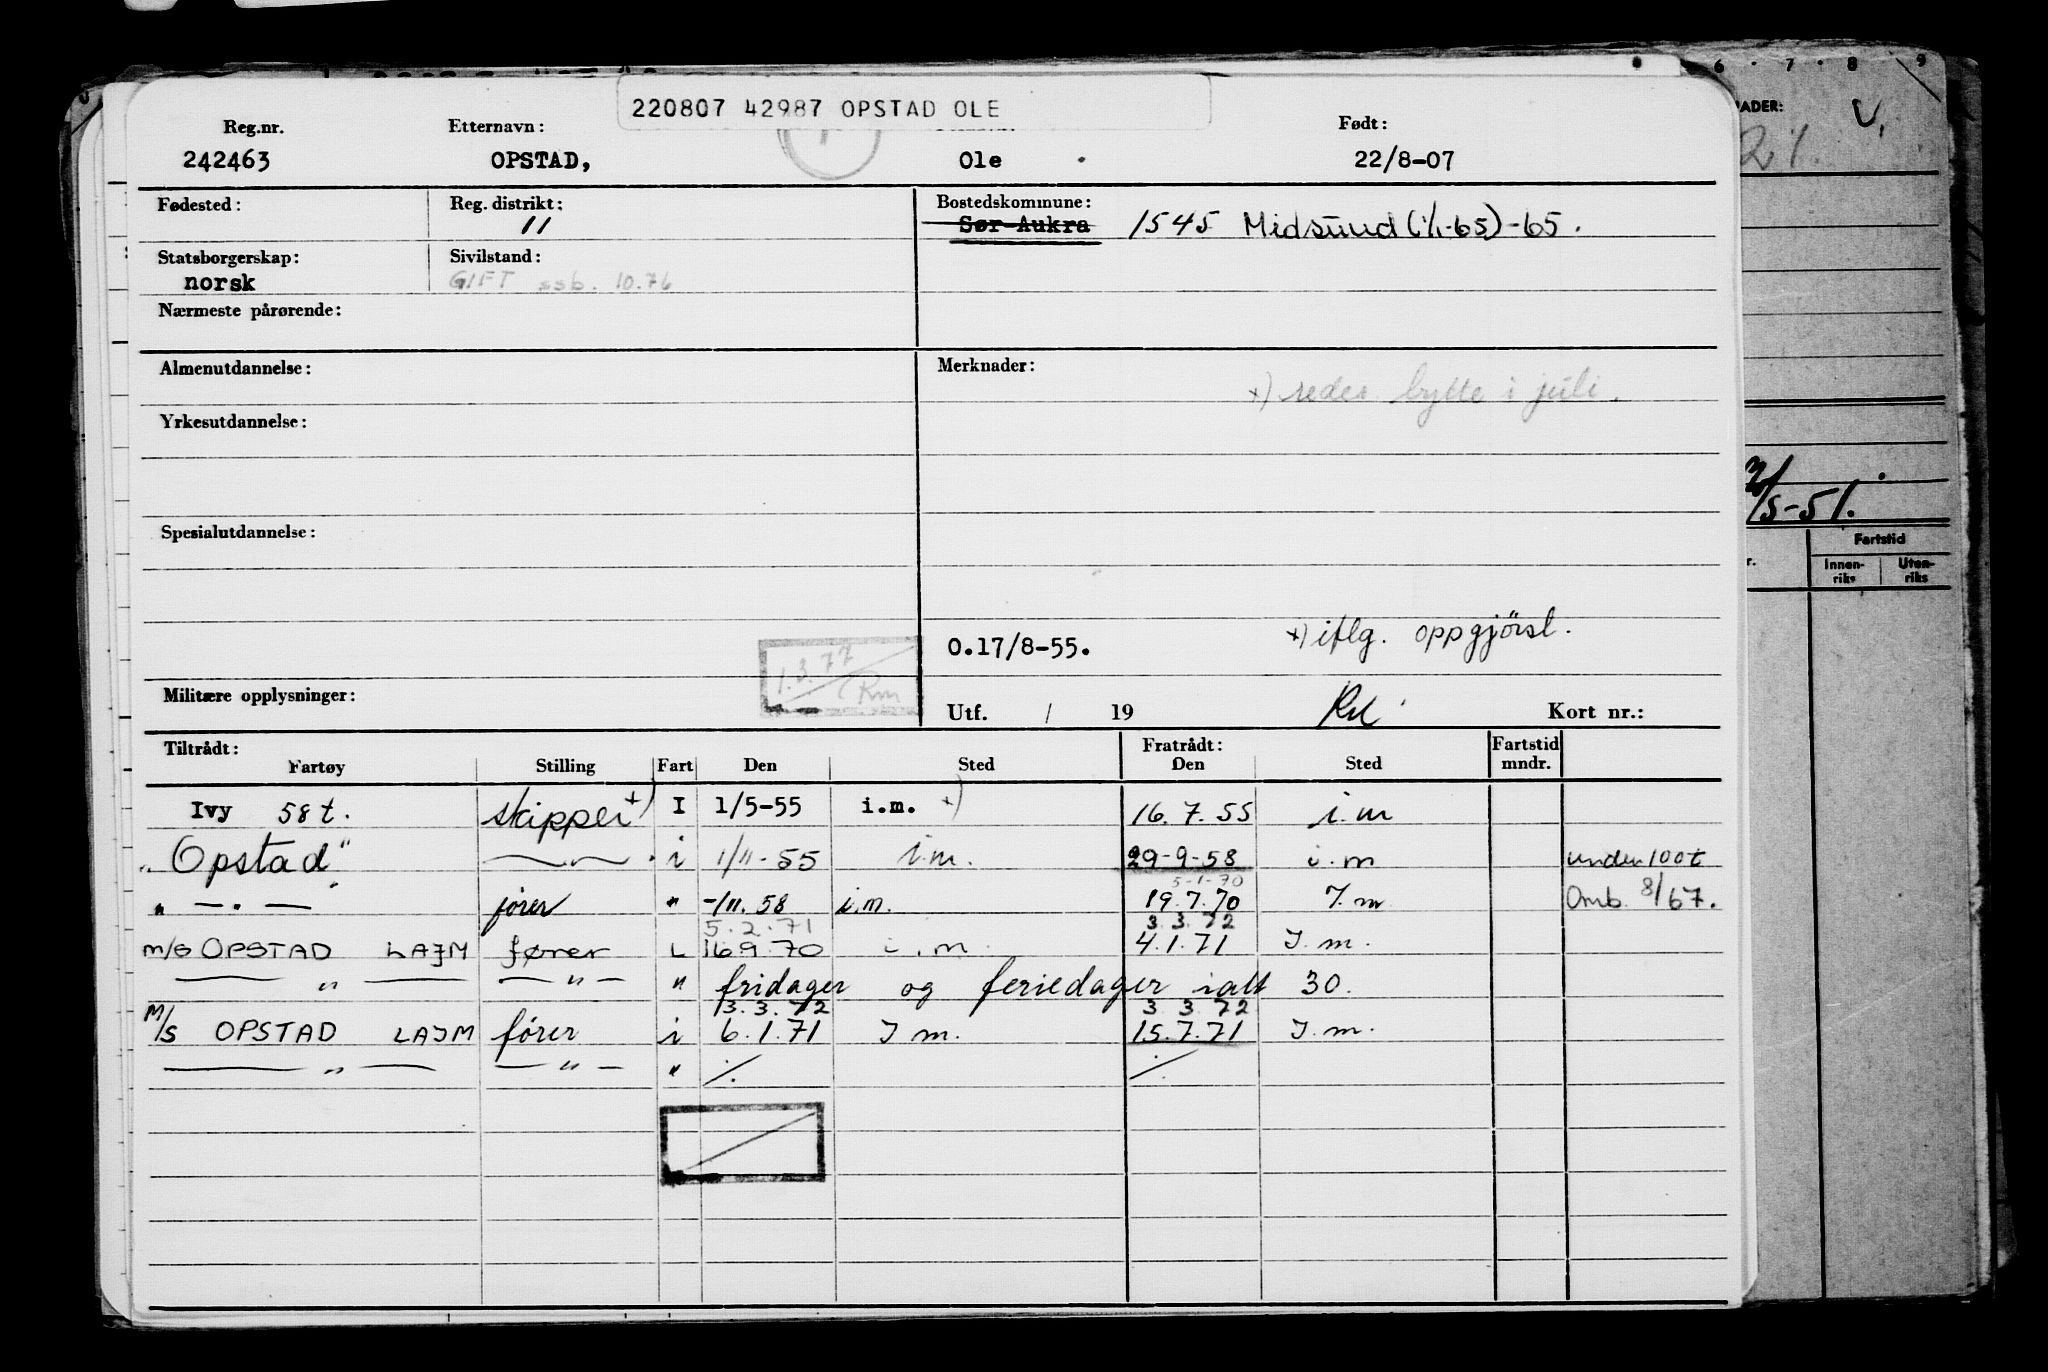 220807 42987 OPSTAD OLE
Reg.nr. Etternavn: Født:
242463 OPSTAD, Ole 22/8-07
Fødested: Reg. distrikt: 11 Bostedskommune: Sør-Aukra 1545 Midsund (1/1-65)-65.
Statsborgerskap: norsk Sivilstand: GIFT ssb. 10.76
Nærmeste pårørende:
Almenutdannelse: Merknader:
x) reder bytte i juli.
Yrkesutdannelse:
Spesialutdannelse:
O.17/8-55. x) iflg. oppgjørsl.
1.3.77 Rm
Militære opplysninger: Utf. / 19 Kort nr.:
Tiltrådt: Fratrådt: Fartstid
Fartøy Stilling Fart Den Sted Den Sted mndr.
Ivy 58 t. skipper x) I 1/5-55 i.m. x) 16.7.55 i.m
"Opstad" i 1/11-55 i.m. 29-9-58 i.m under 100t
5-1-70
" — " — fører " -/11.58 i.m. 19.7.70 I.m Omb. 8/67.
5.2.71 3.3.72
m/s OPSTAD LAJM fører L 16.9.70 i.m. 4.1.71 I.m.
— " — — " — " fridager og feriedager ialt 30.
3.3.72 3.3.72
M/S OPSTAD LAJM fører i 6.1.71 I m. 15.7.71 I.m.
— " — — " — " ./. ./.
6 . 7 . 8 9
NADER:
21.
/5-51.
Fartstid
r. Innen-riks Uten-riks